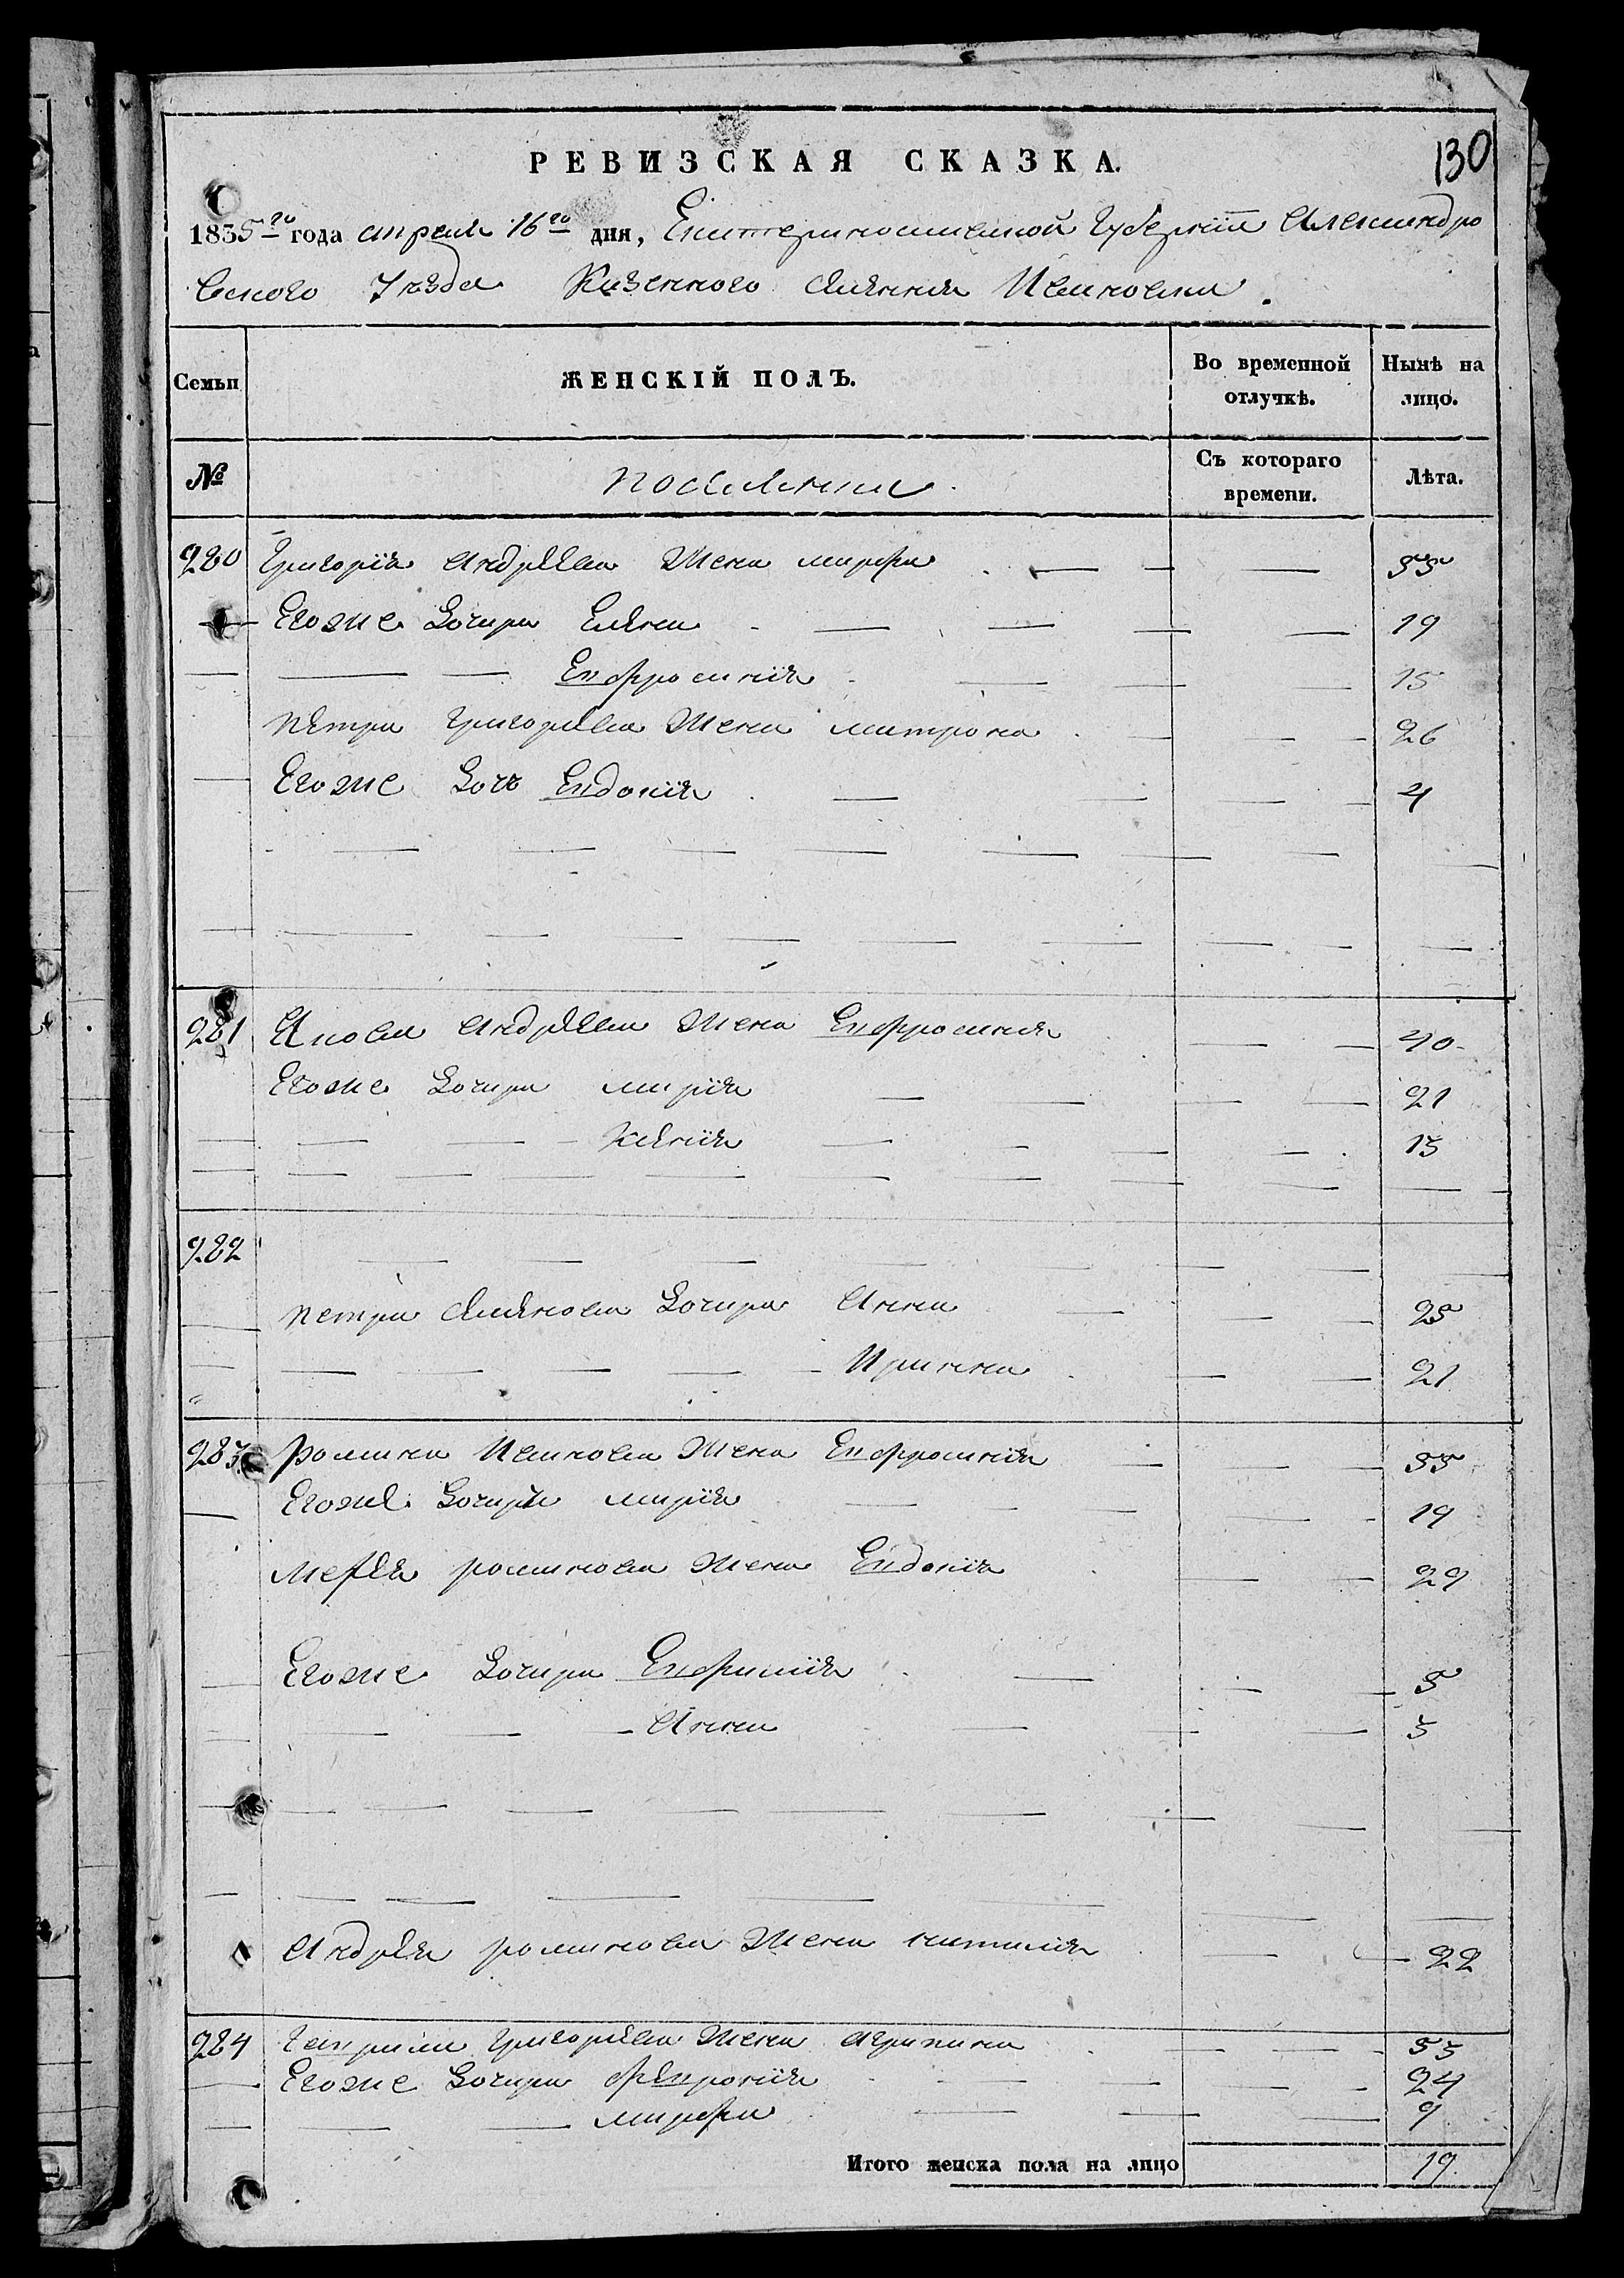 130
РЕВИЗСКАЯ СКАЗКА.
1835го года апреля 16го дня, Екатеринославской Губернiи Александро
вского Уезда Казенного Селения Ивановки.
Семьи ЖЕНСКIЙ ПОЛЪ. Во временной отлучкѣ. Нынѣ на лицо.
№ поселянки Съ котораго времени. Лѣта.
280 Григорiя Андреева Жена марфа 55
Егоже Дочери Елена 19
Евфросинiя 15
петра григорьева Жена матрона 26
Егоже Дочь Евдокiя 4
281 Якова Андреева Жена Евфросиния 40
Егоже Дочери марiя 21
Ксенiя 13
282
петра Семенова Дочери Анна 25
Иринна 21
283 романа Иванова Жена Евфросинiя 55
Егоже Дочери марiя 19
романова Жена Евдокiя 29
Егоже Дочери Евфимiя 5
Анна 3
Андрея романова Жена наталия 22
284 гаврила григорьева Жена агрипина 53
Егоже Дочери февронiя 24
марфа 9
Итого женска пола на лицо 19